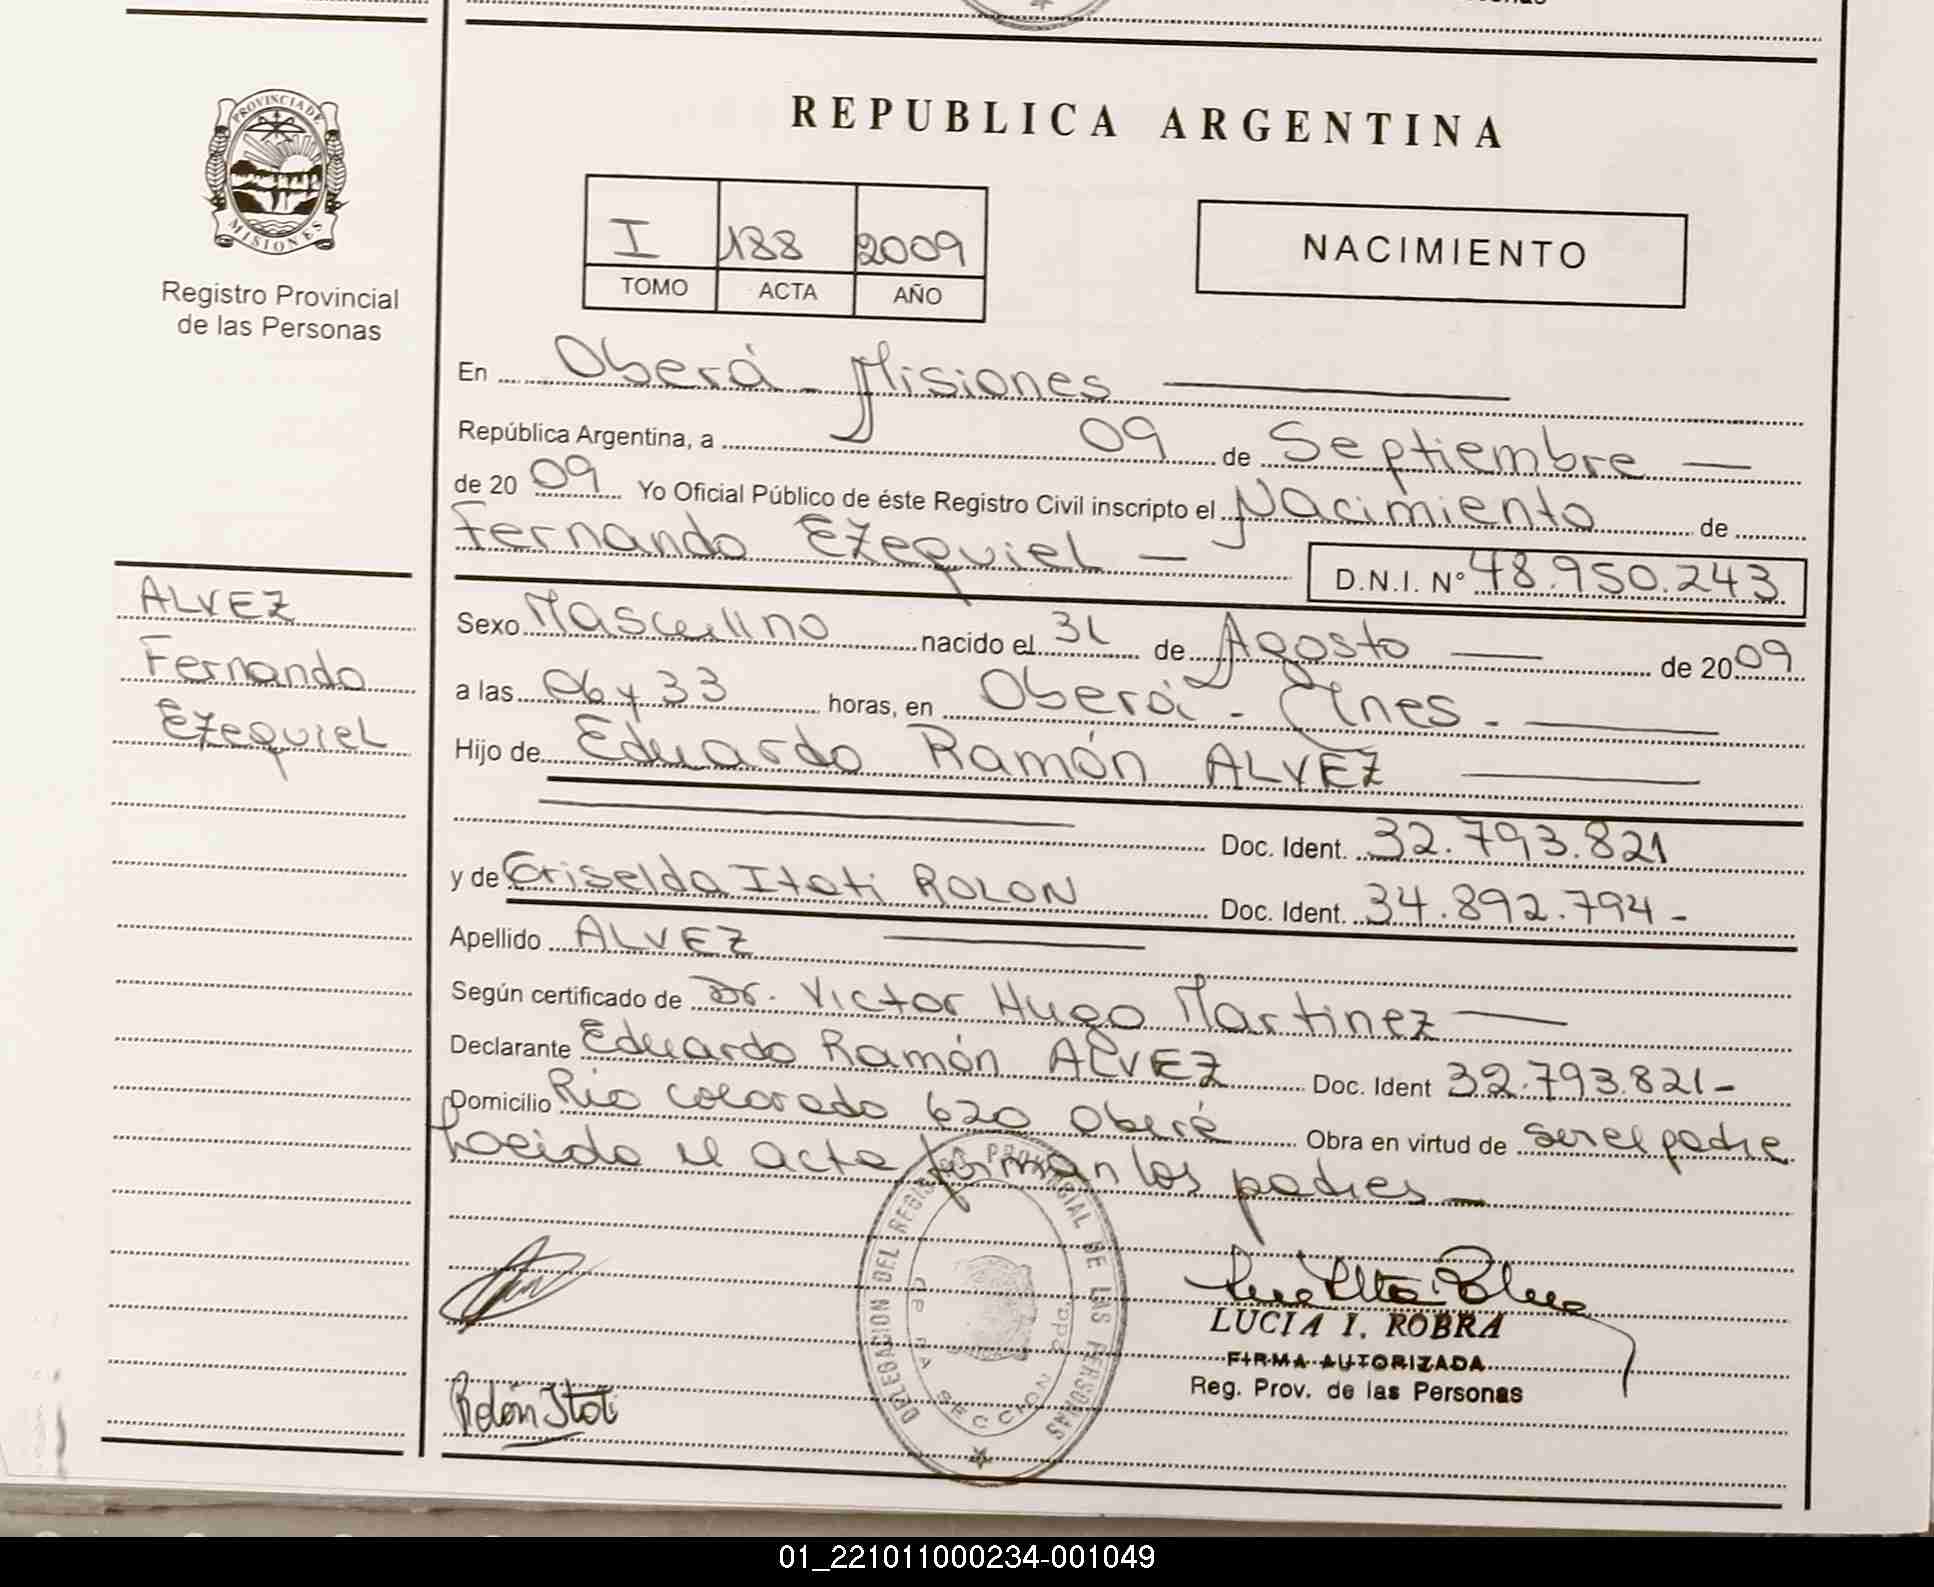 PROVINCIA DE
MISIONES
Registro Provincial
de las Personas
REPUBLICA ARGENTINA
I 188 2009
TOMO ACTA AÑO
NACIMIENTO
En Oberá - Misiones
República Argentina, a 09 de Septiembre
de 2009 Yo Oficial Público de éste Registro Civil inscripto el Nacimiento de
Fernando Ezequiel D.N.I. Nº 48.950.243
ALVEZ
Fernando
Ezequiel
Sexo Masculino nacido el 31 de Agosto de 2009
a las 06 y 33 horas, en Oberá - Mnes.
Hijo de Eduardo Ramón ALVEZ
Doc. Ident. 32.793.821
y de Griselda Itati ROLON Doc. Ident. 34.892.794-
Apellido ALVEZ
Según certificado de Dr. Victor Hugo Martinez
Declarante Eduardo Ramón ALVEZ Doc. Ident 32.793.821-
Domicilio Rio Colorado 620 Oberá Obra en virtud de ser el padre
Leido el acta firman los padres
DELEGACION DEL REGISTRO PROVINCIAL DE LAS PERSONAS
SECCION
Rolón Itati
LUCIA I. ROBRA
FIRMA AUTORIZADA
Reg. Prov. de las Personas
01_221011000234-001049